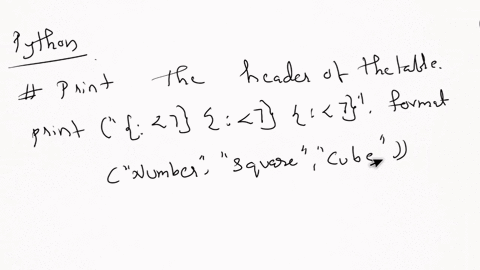 Python
# Print the header of the table.
print ("{:<7} {:<7} {:<7}". format
("Number", "Square", "Cube"))